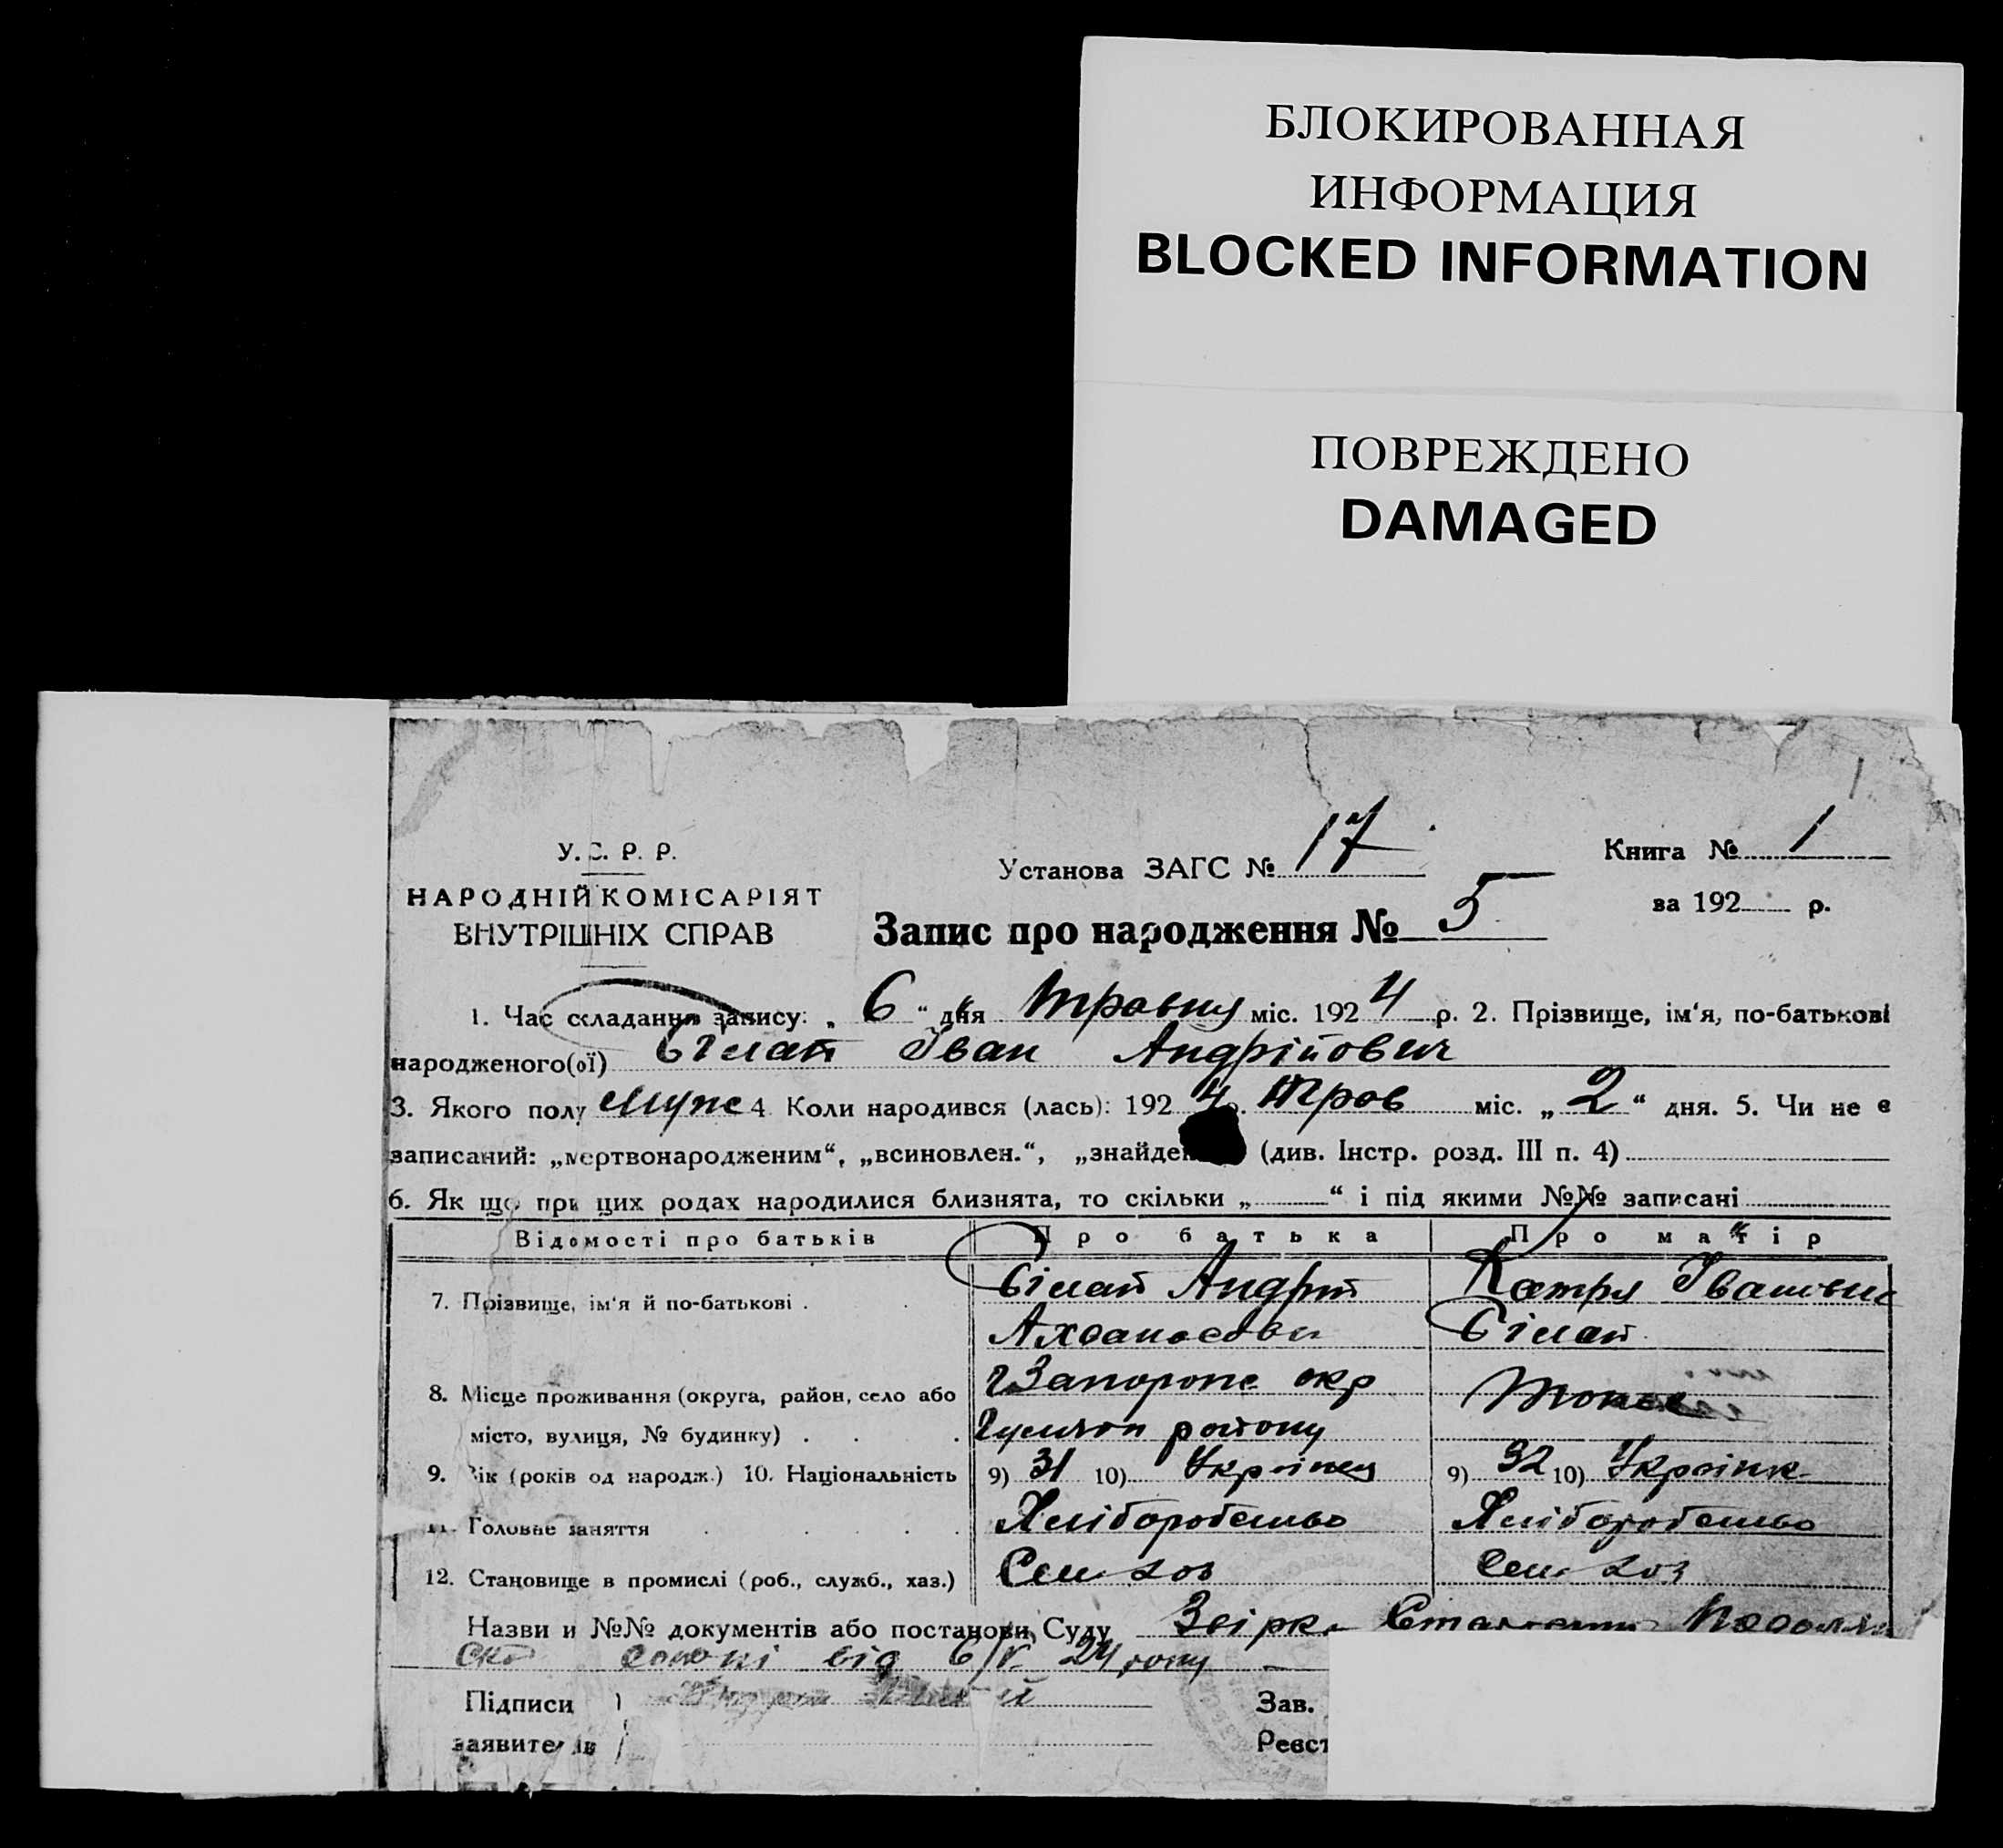 БЛОКИРОВАННАЯ
ИНФОРМАЦИЯ
BLOCKED INFORMATION
ПОВРЕЖДЕНО
DAMAGED
У.С.Р.Р.
НАРОДНІЙ КОМІСАРІЯТ
ВНУТРІШНІХ СПРАВ
Установа ЗАГС № 17
Книга № 1
за 192 р.
Запис про народження № 5
1. Час складання запису: „ 6 “ дня Травня міс. 1924 р. 2. Прізвище, ім‘я, по-батькові
народженого(ої) Іван Андрійович
3. Якого полу муж 4. Коли народився (лась): 1924 р. Трав міс. „ 2 “ дня. 5. Чи не є
записаний: „мертвонародженим“, „всиновлен.“, „знайде (див. Інстр. розд. III п. 4)
6. Як що при цих родах народилися близнята, то скільки „ “ і під якими №№ записані
Відомості про батьків Про батька Про матір
7. Прізвище, ім‘я й по-батькові . Андрій Катря Івановна
8. Місце проживання (округа, район, село або Запорож окр
місто, вулиця, № будинку) . . . району
9. Вік (років од народж.) 10. Національність 9) 31 10) Українец 9) 32 10) Українк
11. Головне заняття . . . . Хліборобство Хліборобство
12. Становище в промислі (роб., служб., хаз.)
Назви и №№ документів або постанови Суду
від 6/V 24 року
Підписи
заявителів
Зав.
Реєст